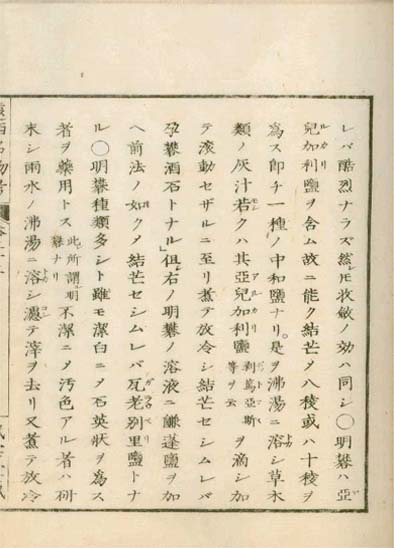 レバ酷烈ナラズ然𪜈收斂ノ効ハ同シ〇明礬ハ亞
兒加利鹽ヲ含ム故ニ能ク結芒メ八稜或ハ十稜ヲ
爲ス卽チ一種ノ中和鹽ナリ。是ヲ沸湯ニ溶シ草木
類ノ灰汁若クハ其亞兒加利鹽剥篤亞斯等ヲ云ヲ滴シ加
テ滾動セザルニ至リ煮テ放冷シ結芒セシムレバ
孕礬酒石トナル」但右ノ明礬ノ溶液ニ鹻蓬鹽ヲ加
ヘ前法ノ如クメ結芒セシムレバ瓦老別里鹽トナ
ル〇明礬種類多シト雖モ潔白ニメ石英狀ヲ爲ス
者ヲ藥用トス此所謂明礬ナリ不潔ニメ汚色アル者ハ研
末シ雨水ノ沸湯ニ溶シ濾テ滓ヲ去リ又煮テ放冷